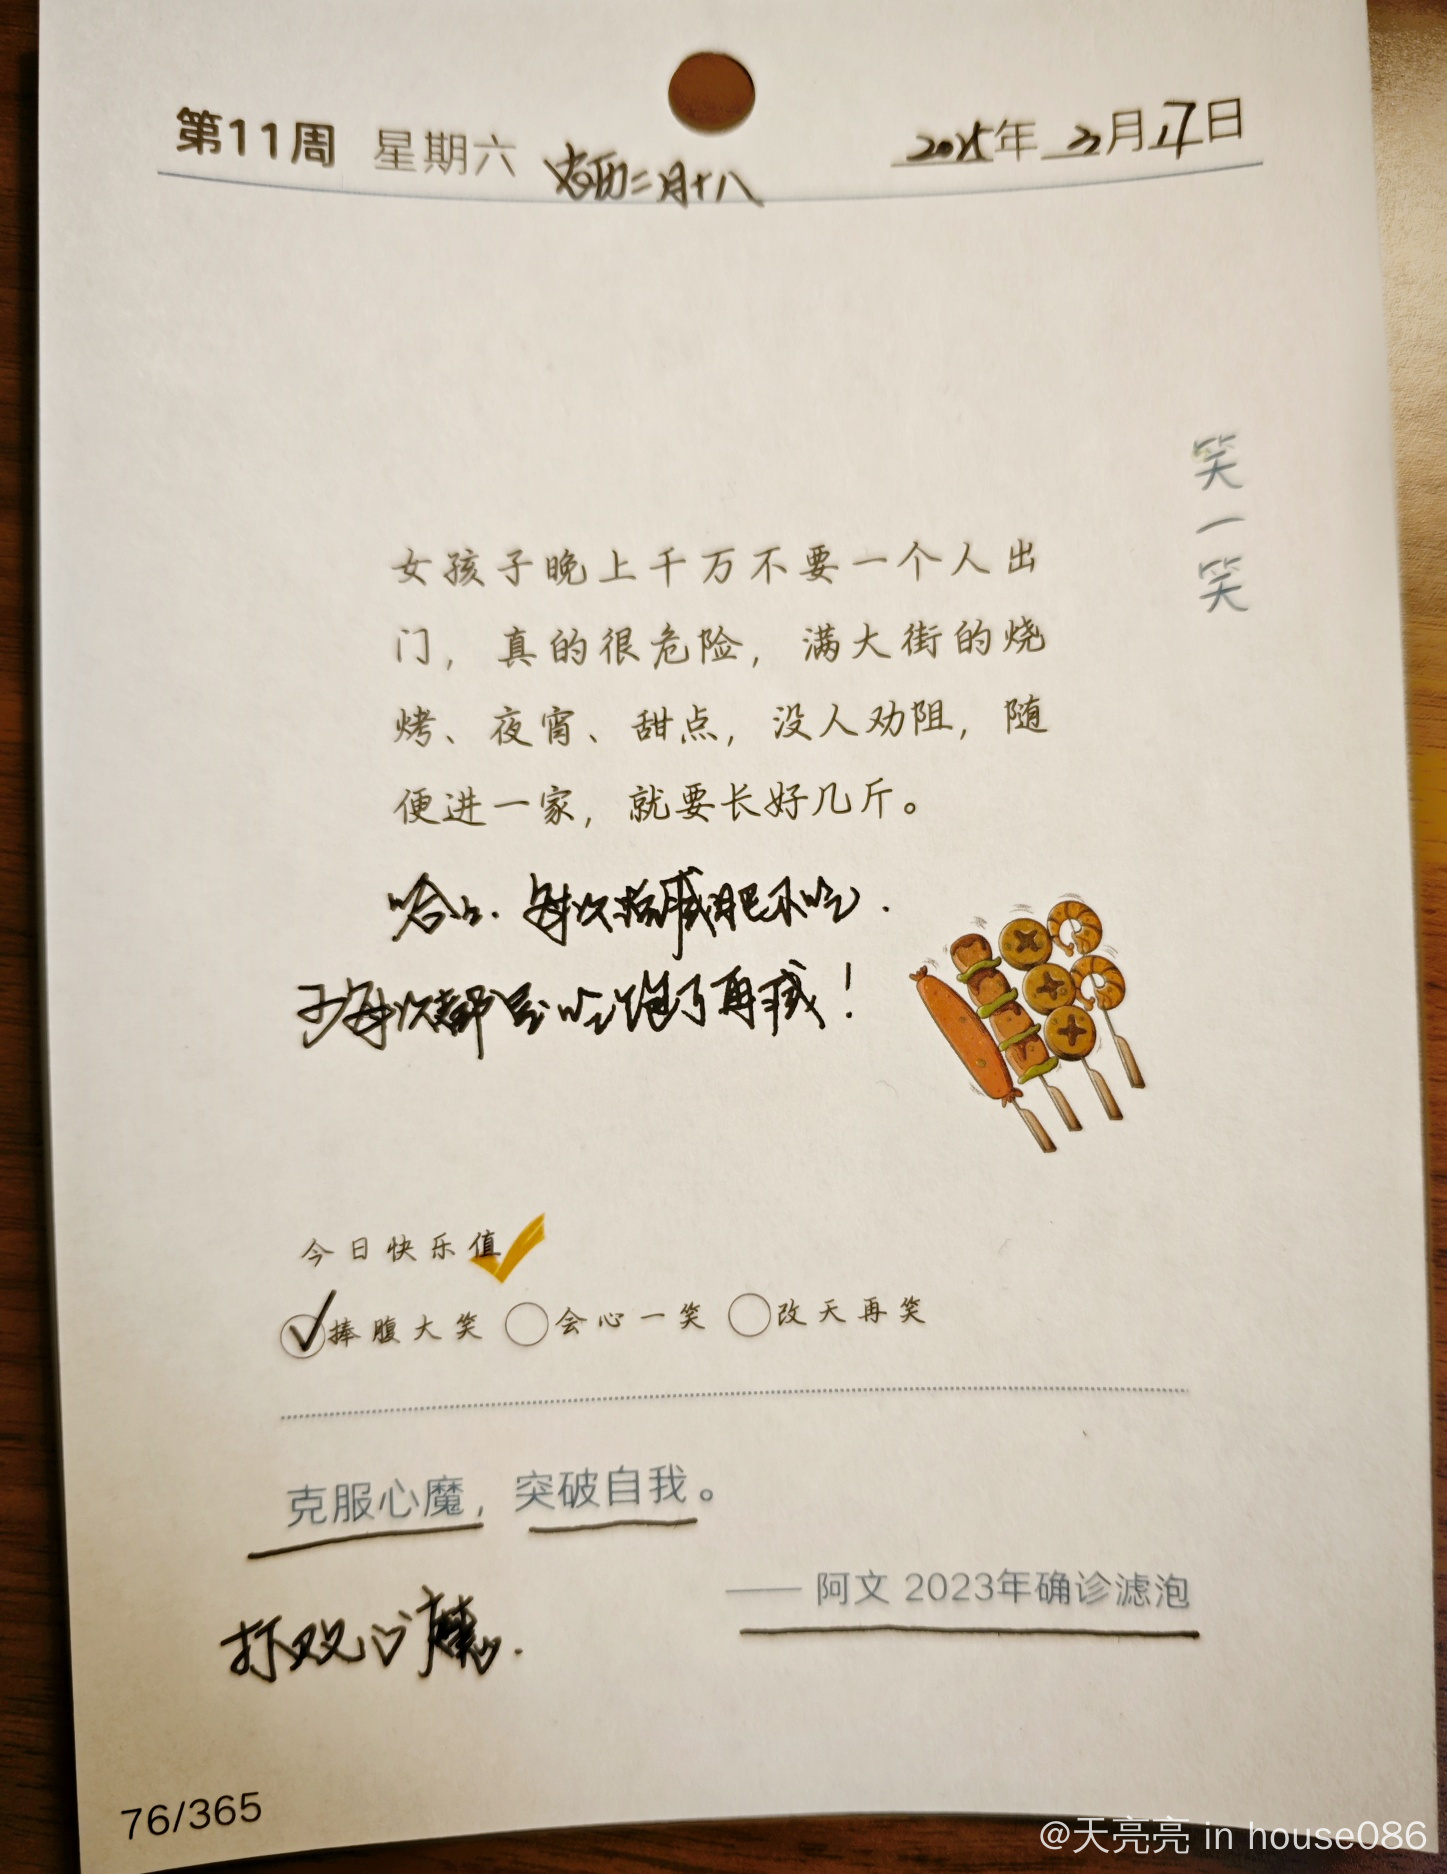 第11周 星期六 农历二月十八 2025年3月17日
笑一笑
女孩子晚上千万不要一个人出
门，真的很危险，满大街的烧
烤、夜宵、甜点，没人劝阻，随
便进一家，就要长好几斤。
哈哈. 每次搞减肥不吃.
每次都会吃饱了再减！
今日快乐值
捧腹大笑 会心一笑 改天再笑
克服心魔，突破自我。
—— 阿文 2023年确诊滤泡
打败心魔.
76/365
@天亮亮 in house086